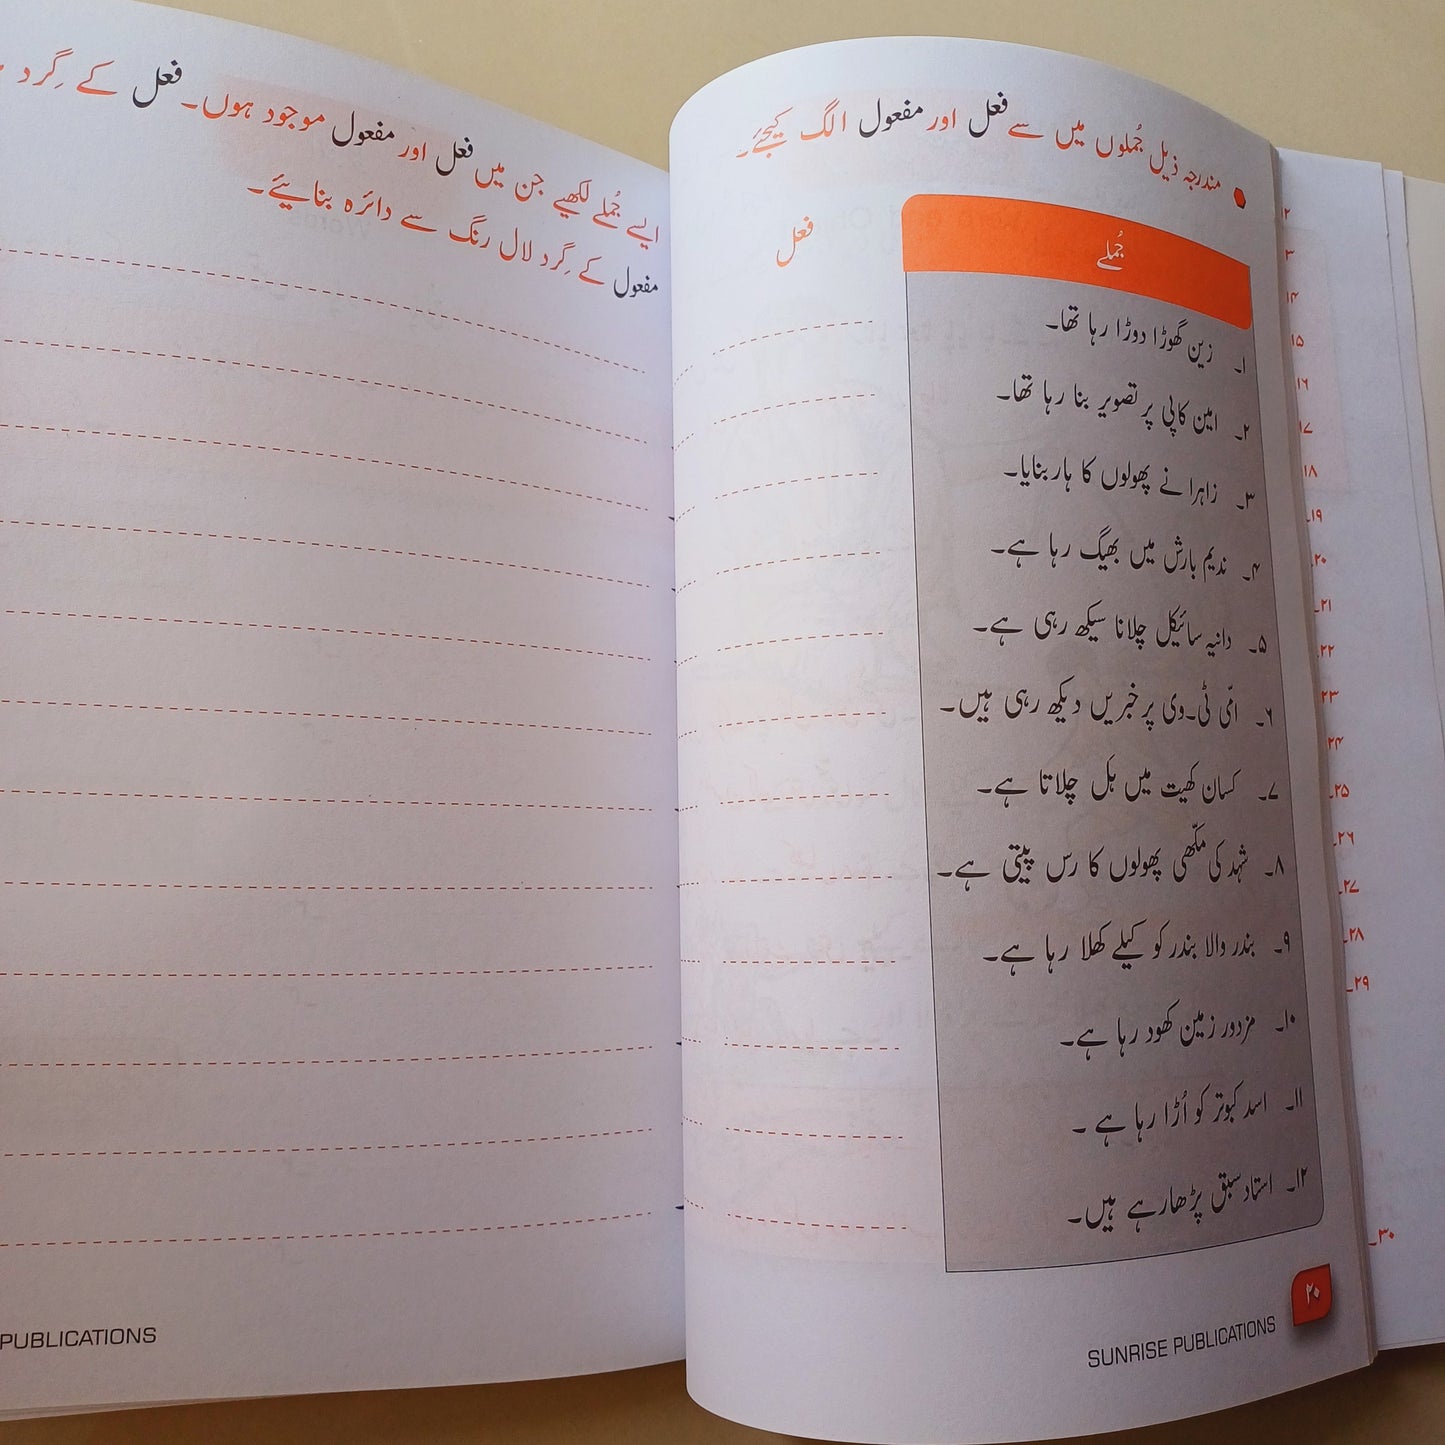 مندرجہ ذیل جُملوں میں سے فعل اور مفعول الگ کیجئے۔
جُملے
فعل
۱۔ زین گھوڑا دوڑا رہا تھا۔
۲۔ امین کاپی پر تصویر بنا رہا تھا۔
۳۔ زاہرا نے پھولوں کا ہار بنایا۔
۴۔ ندیم بارش میں بھیگ رہا ہے۔
۵۔ دانیہ سائیکل چلانا سیکھ رہی ہے۔
۶۔ امّی ٹی۔وی پر خبریں دیکھ رہی ہیں۔
۷۔ کسان کھیت میں ہَل چلاتا ہے۔
۸۔ شہد کی مکّھی پھولوں کا رس پیتی ہے۔
۹۔ بندر والا بندر کو کیلے کھلا رہا ہے۔
۱۰۔ مزدور زمین کھود رہا ہے۔
۱۱۔ اسد کبوتر کو اُڑا رہا ہے۔
۱۲۔ استاد سبق پڑھا رہے ہیں۔
۲۰
SUNRISE PUBLICATIONS
ایسے جُملے لکھیے جن میں فعل اور مفعول موجود ہوں۔ فعل کے گِرد
مفعول کے گِرد لال رنگ سے دائرہ بنائیے۔
PUBLICATIONS
۱۴
۱۵
۱۶
۱۷
۱۸
۱۹۔
۲۰۔
۲۱۔
۲۲۔
۲۳
۲۴
۲۵۔
۲۶۔
۲۷۔
۲۸۔
۲۹۔
۳۰۔